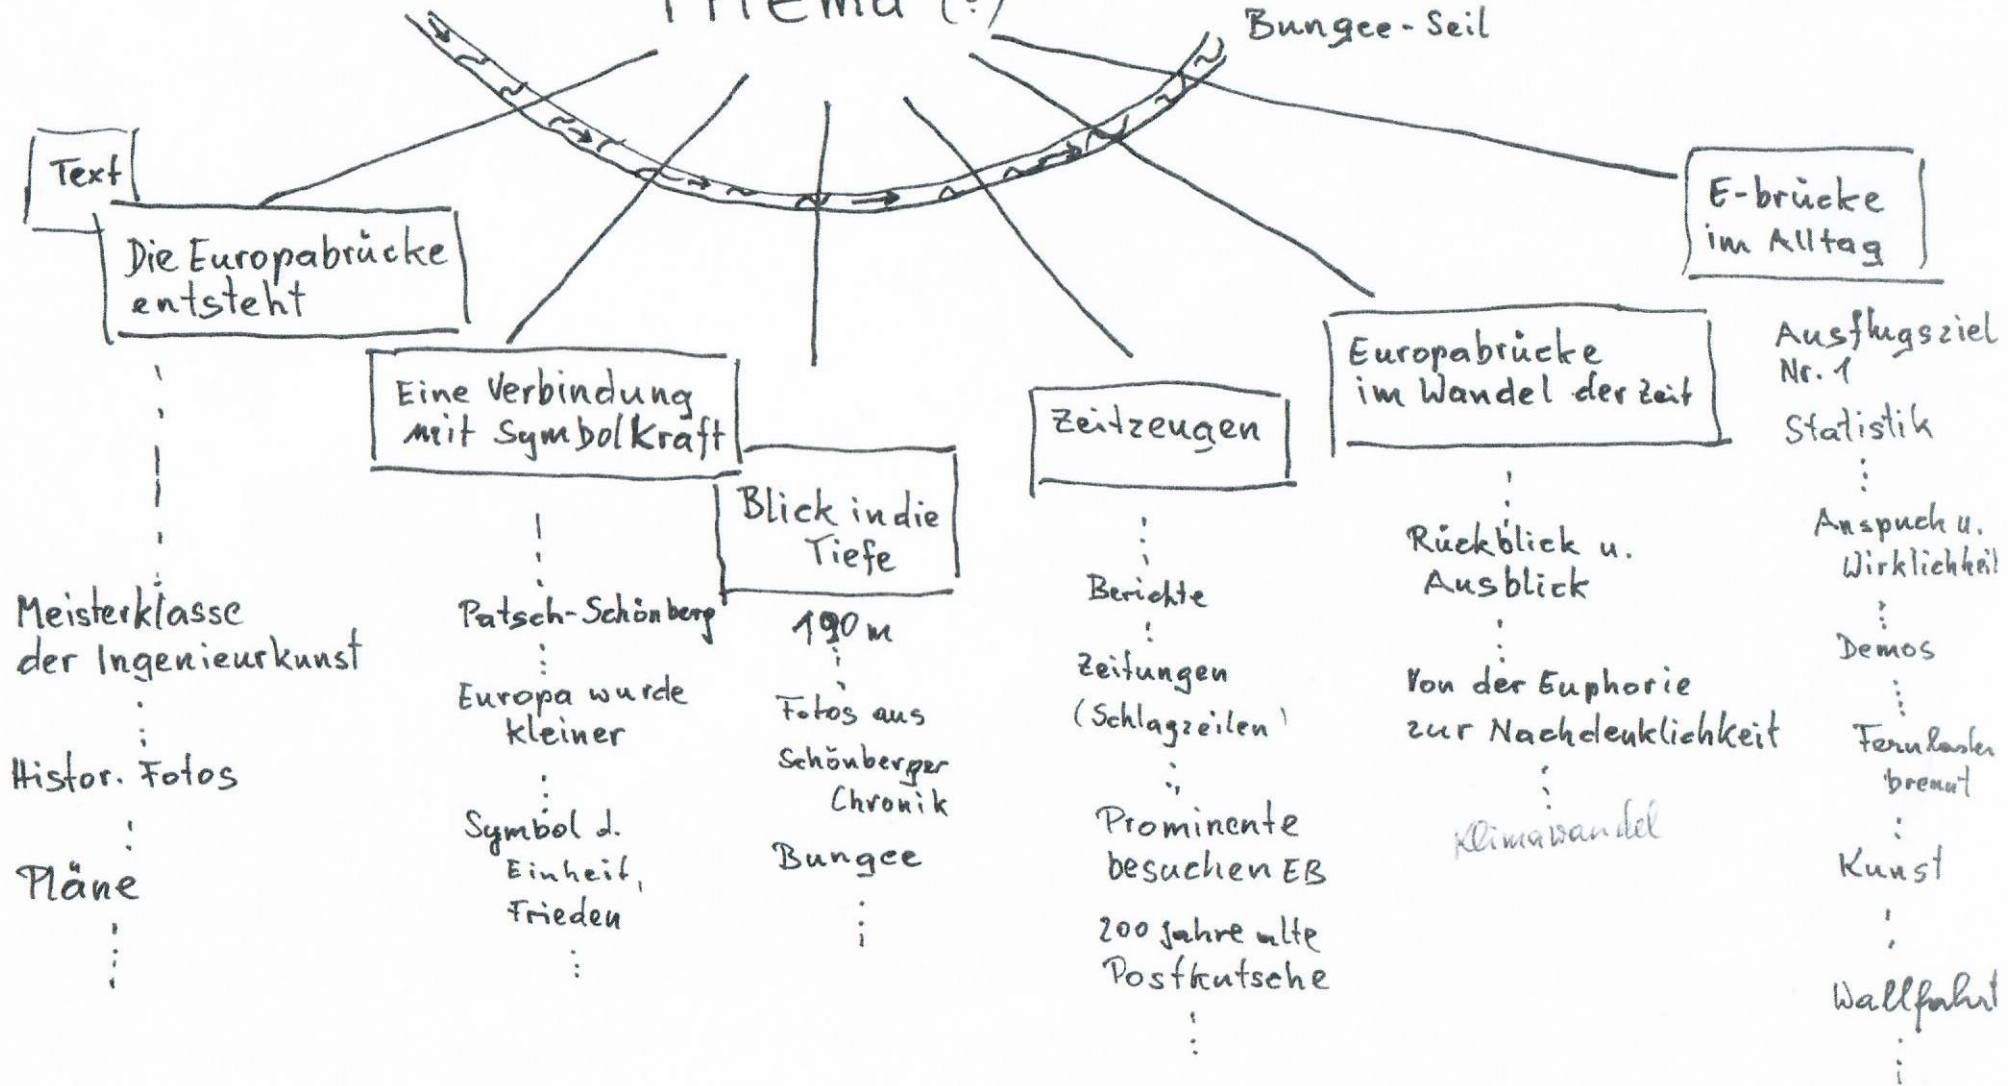 Thema (?)
Bungee-Seil
Text
Die Europabrücke
entsteht
Meisterklasse
der Ingenieurkunst
Histor. Fotos
Pläne
Eine Verbindung
mit Symbolkraft
Patsch-Schönberg
Europa wurde
kleiner
Symbol d.
Einheit,
Frieden
Blick in die
Tiefe
190 m
Fotos aus
Schönberger
Chronik
Bungee
Zeitzeugen
Berichte
Zeitungen
(Schlagzeilen)
Prominente
besuchen EB
200 Jahre alte
Postkutsche
Europabrücke
im Wandel der Zeit
Rückblick u.
Ausblick
Von der Euphorie
zur Nachdenklichkeit
Klimawandel
E-brücke
im Alltag
Ausflugsziel
Nr. 1
Statistik
Anspuch u.
Wirklichkeit
Demos
Fernlaster
brennt
Kunst
Wallfahrt